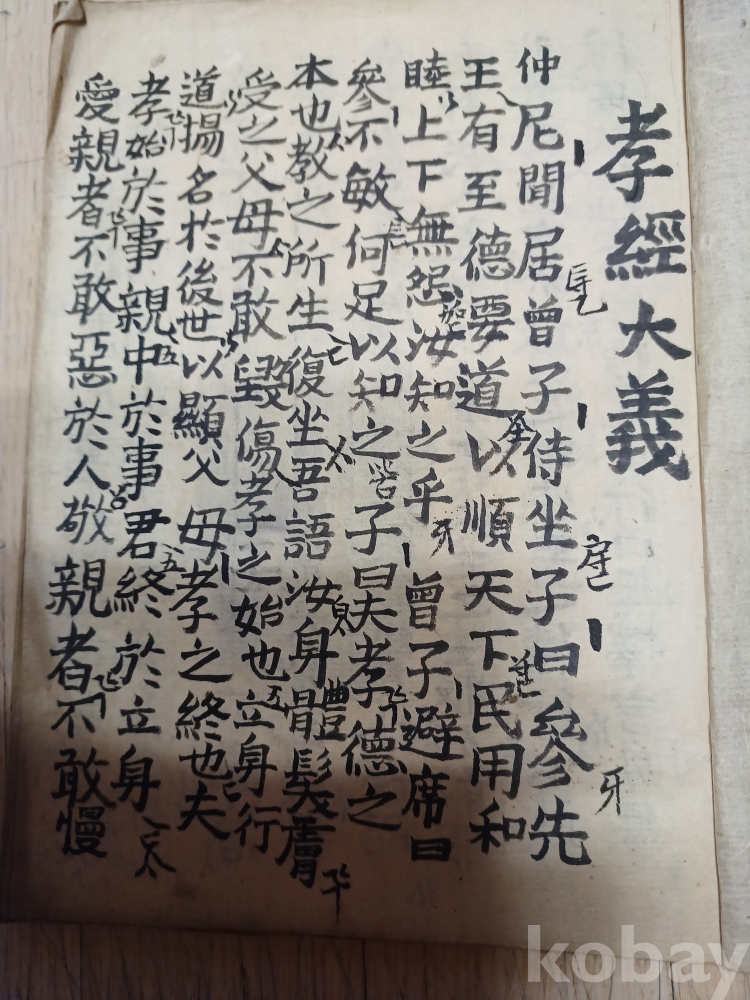 孝經大義
仲尼閒居曾子侍坐子曰參先
王有至德要道以順天下民用和
睦上下無怨汝知之乎曾子避席曰
參不敏何足以知之子曰夫孝德之
本也教之所生復坐吾語汝身體髮膚
受之父母不敢毀傷孝之始也立身行
道揚名於後世以顯父母孝之終也夫
孝始於事親中於事君終於立身
愛親者不敢惡於人敬親者不敢慢
kobay